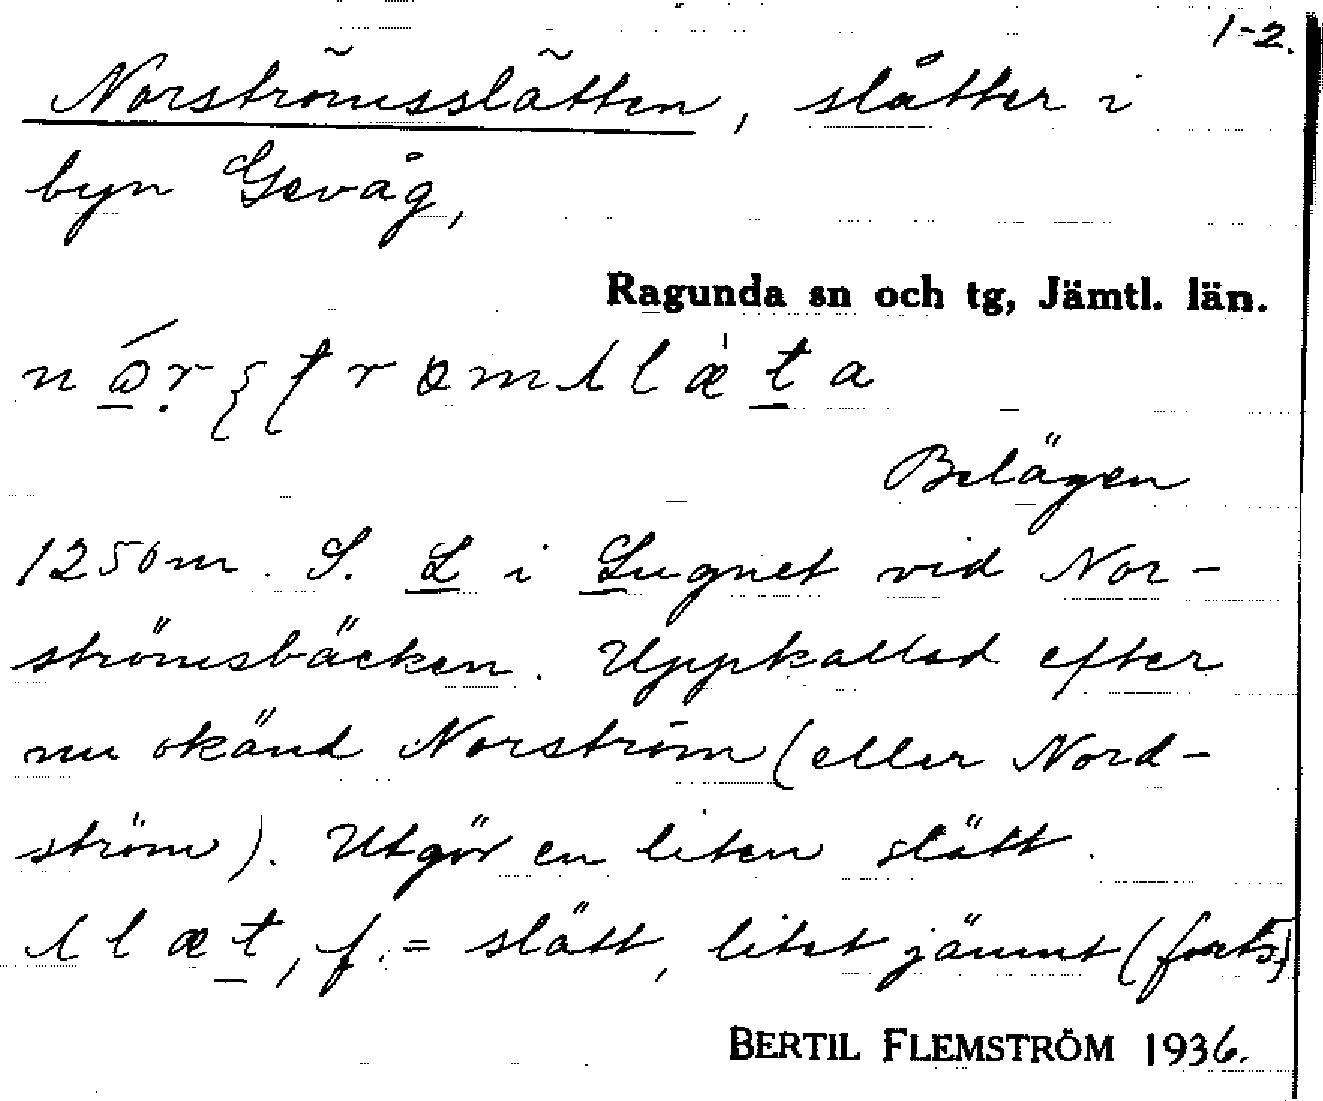 1-2.
Norströmsslätten, slåtter i
byn Gevåg,
Ragunda sn och tg, Jämtl. län.
Belägen
1250m. S. L i Lugnet vid Nor-
strömsbäcken. Uppkallad efter
nu okänd Norström (eller Nord-
ström). Utgör en liten slätt.
slæt, f. = slätt, litet jämnt (forts.)
BERTIL FLEMSTRÖM 1936.